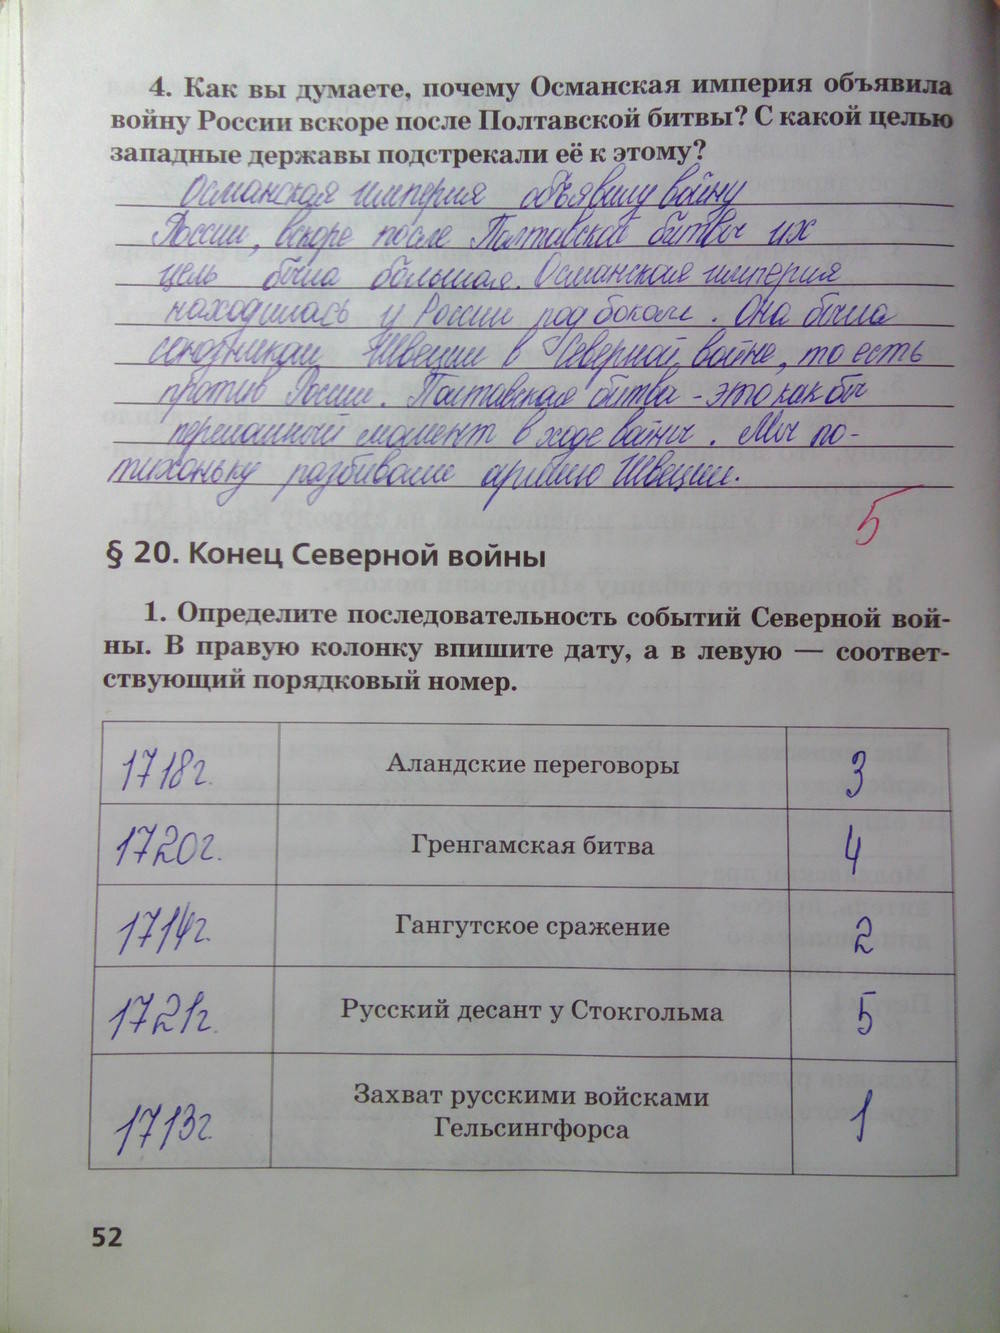 4. Как вы думаете, почему Османская империя объявила
войну России вскоре после Полтавской битвы? С какой целью
западные державы подстрекали её к этому?
Османская империя объявилу войну
России, вскоре после Полтавской битвы их
цель была большая. Османская империя
находилась у России под боком. Она была
союзником Швеции в Северной войне, то есть
против России. Полтавская битва - это как бы
переломный момент в ходе войны. Мы по-
тихоньку разбивали армию Швеции.
5
§ 20. Конец Северной войны
1. Определите последовательность событий Северной вой-
ны. В правую колонку впишите дату, а в левую — соответ-
ствующий порядковый номер.
1718г. Аландские переговоры 3
1720г. Гренгамская битва 4
1714г. Гангутское сражение 2
1721г. Русский десант у Стокгольма 5
Захват русскими войсками
1713г. Гельсингфорса 1
52